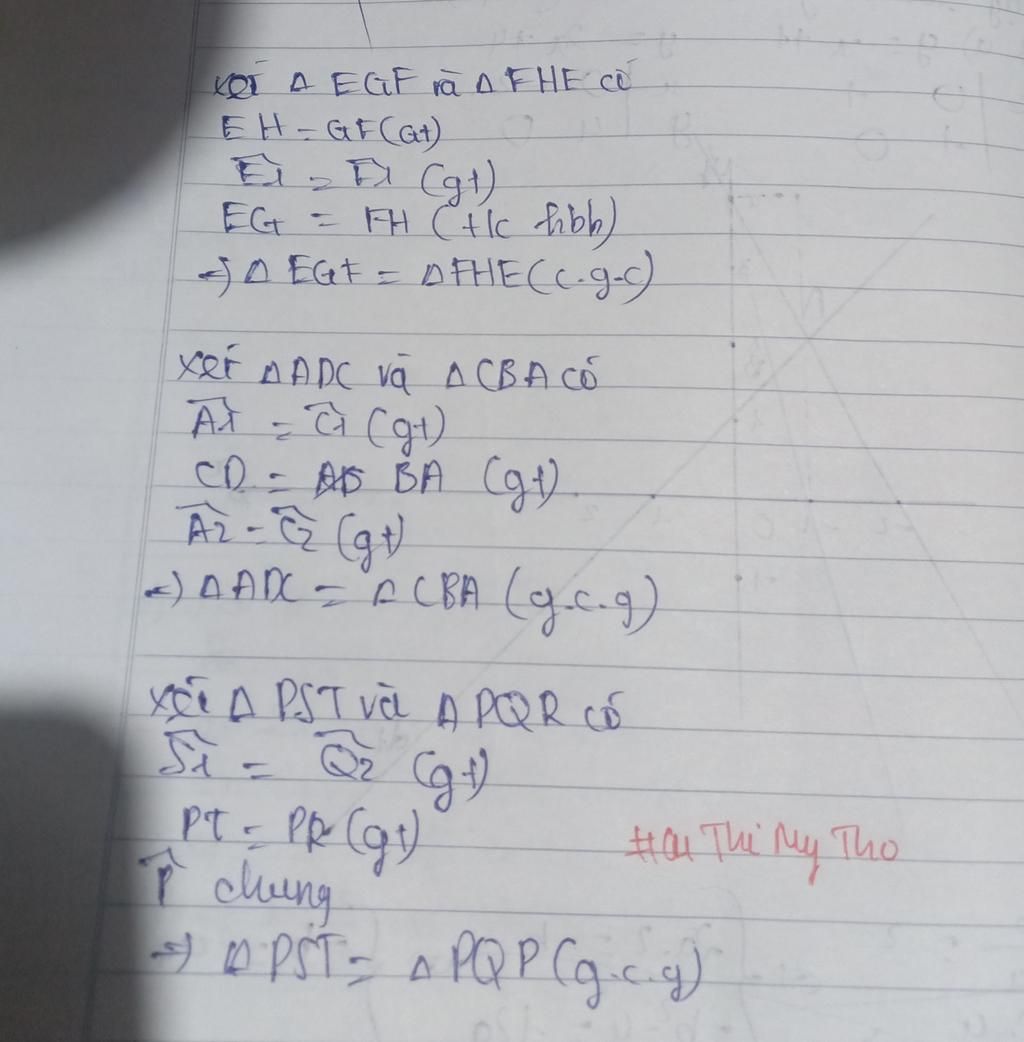 xét Δ EGF và Δ FHE có
EH = GF (Gt)
Ê1 = F̂1 (gt)
EG = FH (t/c hbh)
=> Δ EGF = Δ FHE (c.g-c)
xét Δ ADC và Δ CBA có
Â1 = Ĉ1 (gt)
CD = BA (gt)
Â2 = Ĉ2 (gt)
=> Δ ADC = Δ CBA (g.c.g)
xét Δ PST và Δ PQR có
Ŝ1 = Q̂2 (gt)
PT = PR (gt)
#Au Thi My Tho
P̂ chung
=> Δ PST = Δ PQP (g.c.g)